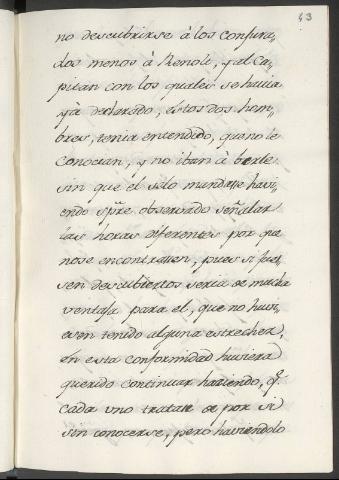 43
no descubrirse à los conjura„
dos menos à Renoli, y al Ca„
pitan con los quales se havia
yà declarado, estos dos hom„
bres, tenia entendido, que no le
conocian, y no iban à berle
sin que el solo mandasse havi„
endo spre observado señalar
las horas diferentes por que
nose encontrassen, pues si fues„
sen descubiertos seria de mucha
ventaja para el, que no huvi„
esen tenido alguna estrechez,
en esta conformidad huviera
querido continuar haziendo, q.
cada uno tratase de por si
sin conocerse, pero haviendolo